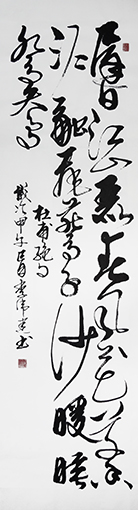 遲日江山麗春風花草香
泥融飛燕子沙暖睡
鴛鴦
杜甫絕句
歲次甲午 月李偉 書